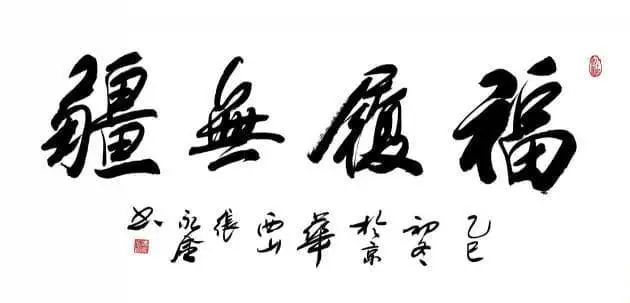 福履無疆
乙巳初冬於京華西山張永书